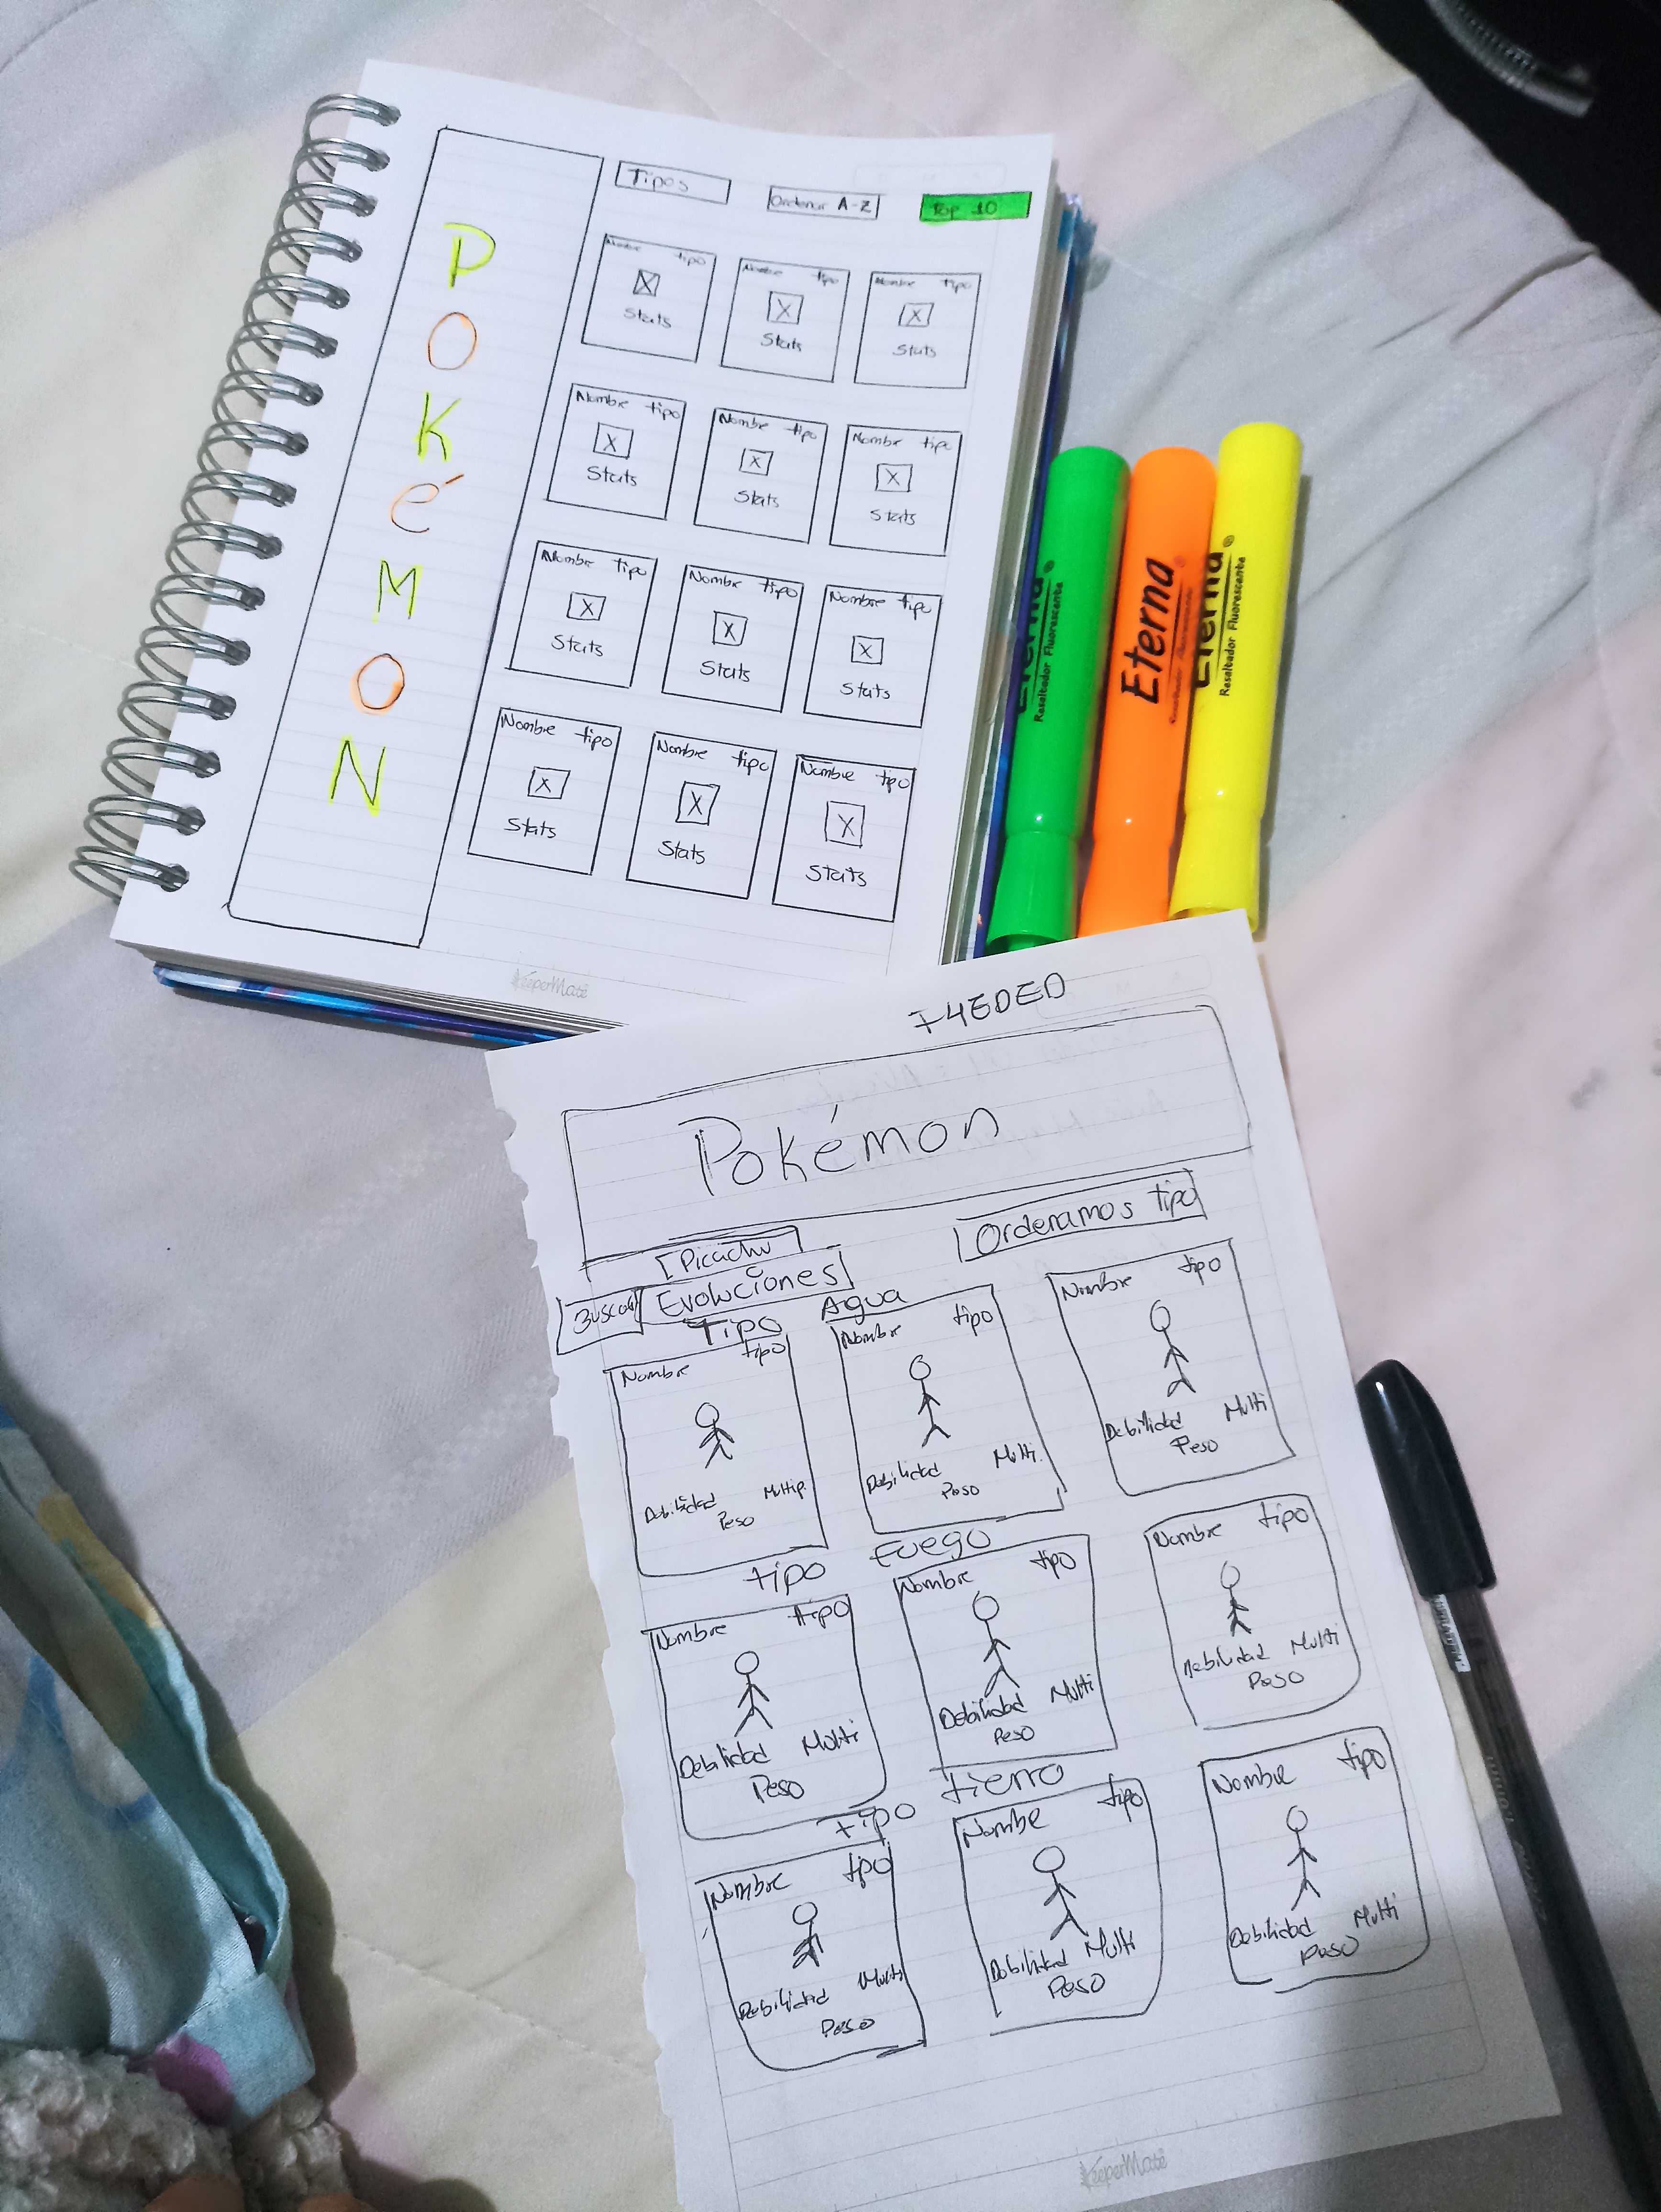 Tipos
Ordenar A-Z
Top 10
P
O
K
é
M
O
N
Nombre tipo
Stats
Nombre tipo
Stats
Nombre tipo
Stats
Nombre tipo
Stats
Nombre tipo
Stats
Nombre tipo
Stats
Nombre tipo
Stats
Nombre tipo
Stats
Nombre tipo
Stats
Nombre tipo
Stats
Nombre tipo
Stats
Nombre tipo
Stats
KeeperMate
Eterna
Resaltador Fluorescente
Eterna
Resaltador Fluorescente
Eterna
Resaltador Fluorescente
Pokémon
Picachu
Ordenamos tipo
Buscar
Evoluciones
Tipo Agua
Nombre tipo
Debilidad Multip.
Peso
Nombre tipo
Debilidad Multi.
Peso
Nombre tipo
Debilidad Multi
Peso
tipo Fuego
Nombre tipo
Debilidad Multi
Peso
Nombre tipo
Debilidad Multi
Peso
Nombre tipo
Debilidad Multi
Peso
tipo tierra
Nombre tipo
Debilidad Multi
Peso
Nombre tipo
Debilidad Multi
Peso
Nombre tipo
Debilidad Multi
Peso
KeeperMate